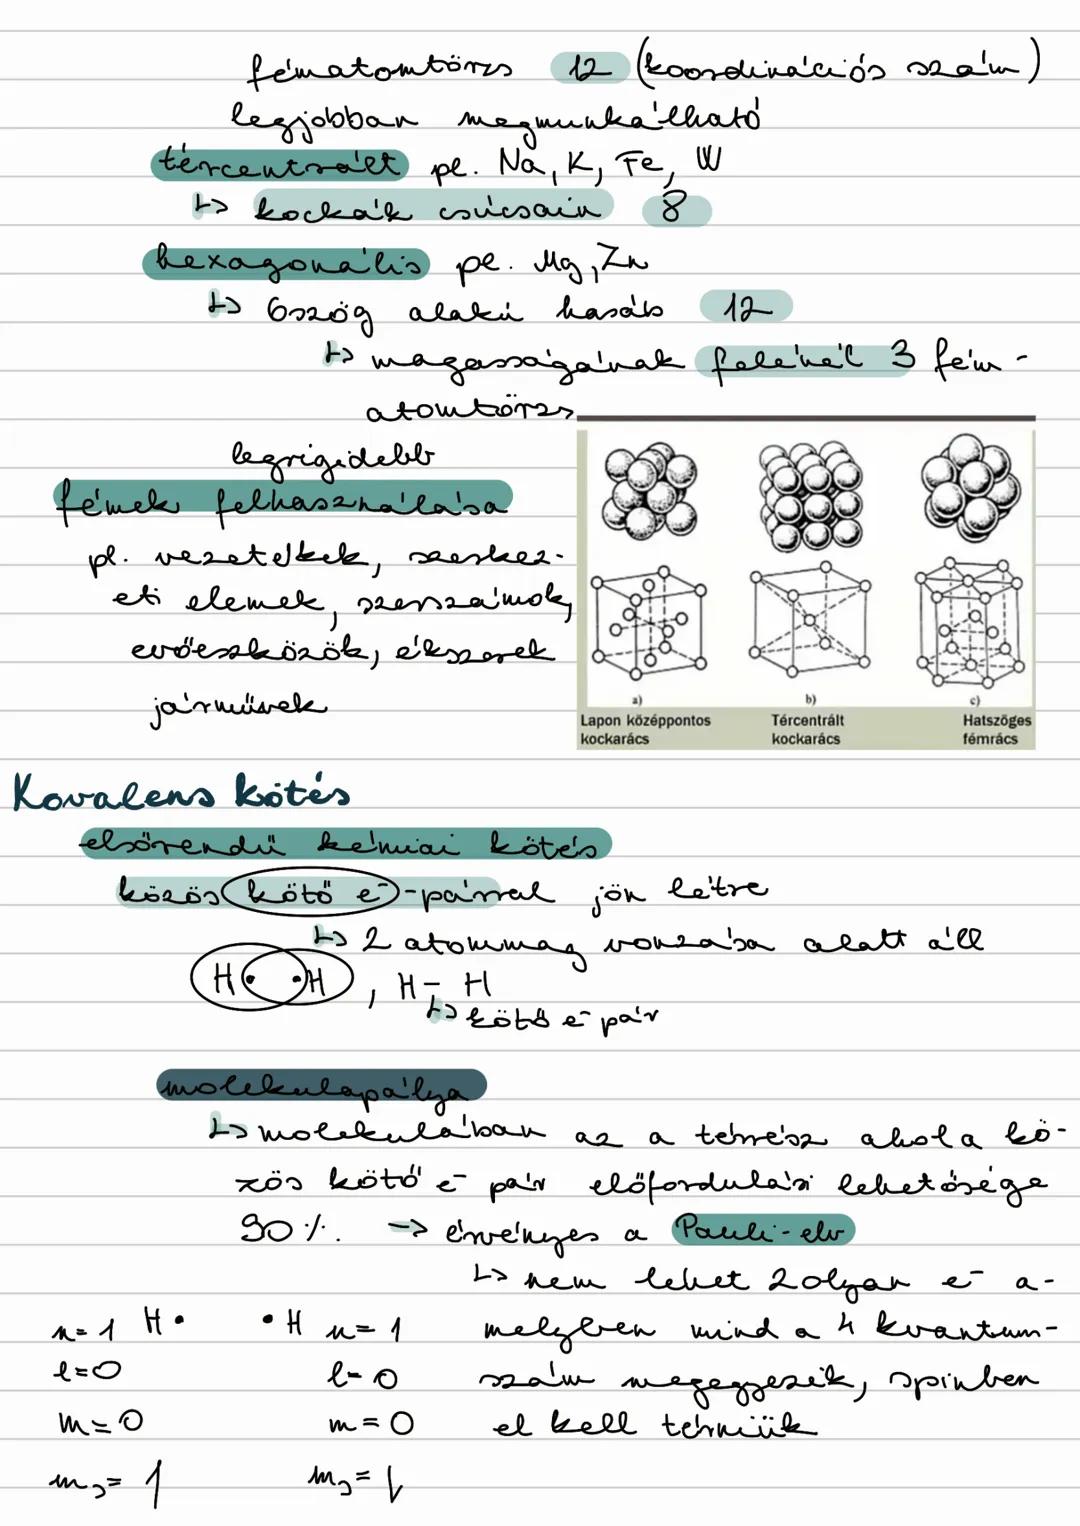 fématomtörzs 12 (koordinációs szám)
legjobban megmunkálható
tércentrált pl. Na, K, Fe, W
↳ kockák csúcsain 8
hexagonális pl. Mg, Zn
↳ 6szög alakú hasáb 12
↳ magasságának felénél 3 fém-
atomtörzs
legrigidebb
fémek felhasználása
pl. vezetékek, szerkez-
eti elemek, szerszámok,
evőeszközök, ékszerek
járművek
a) b) c)
Lapon középpontos kockarács
Tércentrált kockarács
Hatszöges fémrács
Kovalens kötés
elsőrendű kémiai kötés
közös kötő e⁻-párral jön létre
↳ 2 atommag vonzása alatt áll
H • • H , H – H
↳ kötő e⁻ pár
molekulapálya
↳ molekulában az a térrész ahol a kö-
zös kötő e⁻ pár előfordulási lehetősége
90 %. → érvényes a Pauli-elv
↳ nem lehet 2 olyan e⁻ a-
n=1 H • • H n=1 melyben mind a 4 kvantum-
l=0 l=0 szám megegyezik, spinben
m=0 m=0 el kell térniük
mₛ= ↿ mₛ= ⇂